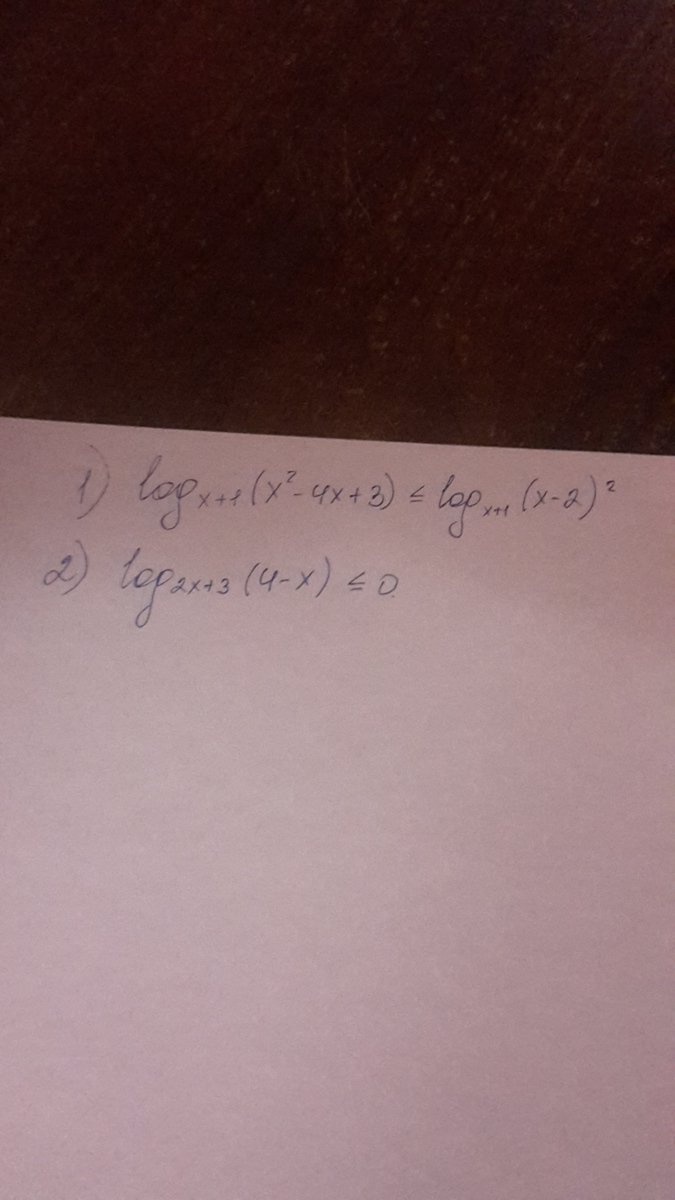 1) log_{x+1}(x²-4x+3) ≤ log_{x+1}(x-2)²
2) log_{2x+3}(4-x) ≤ 0.